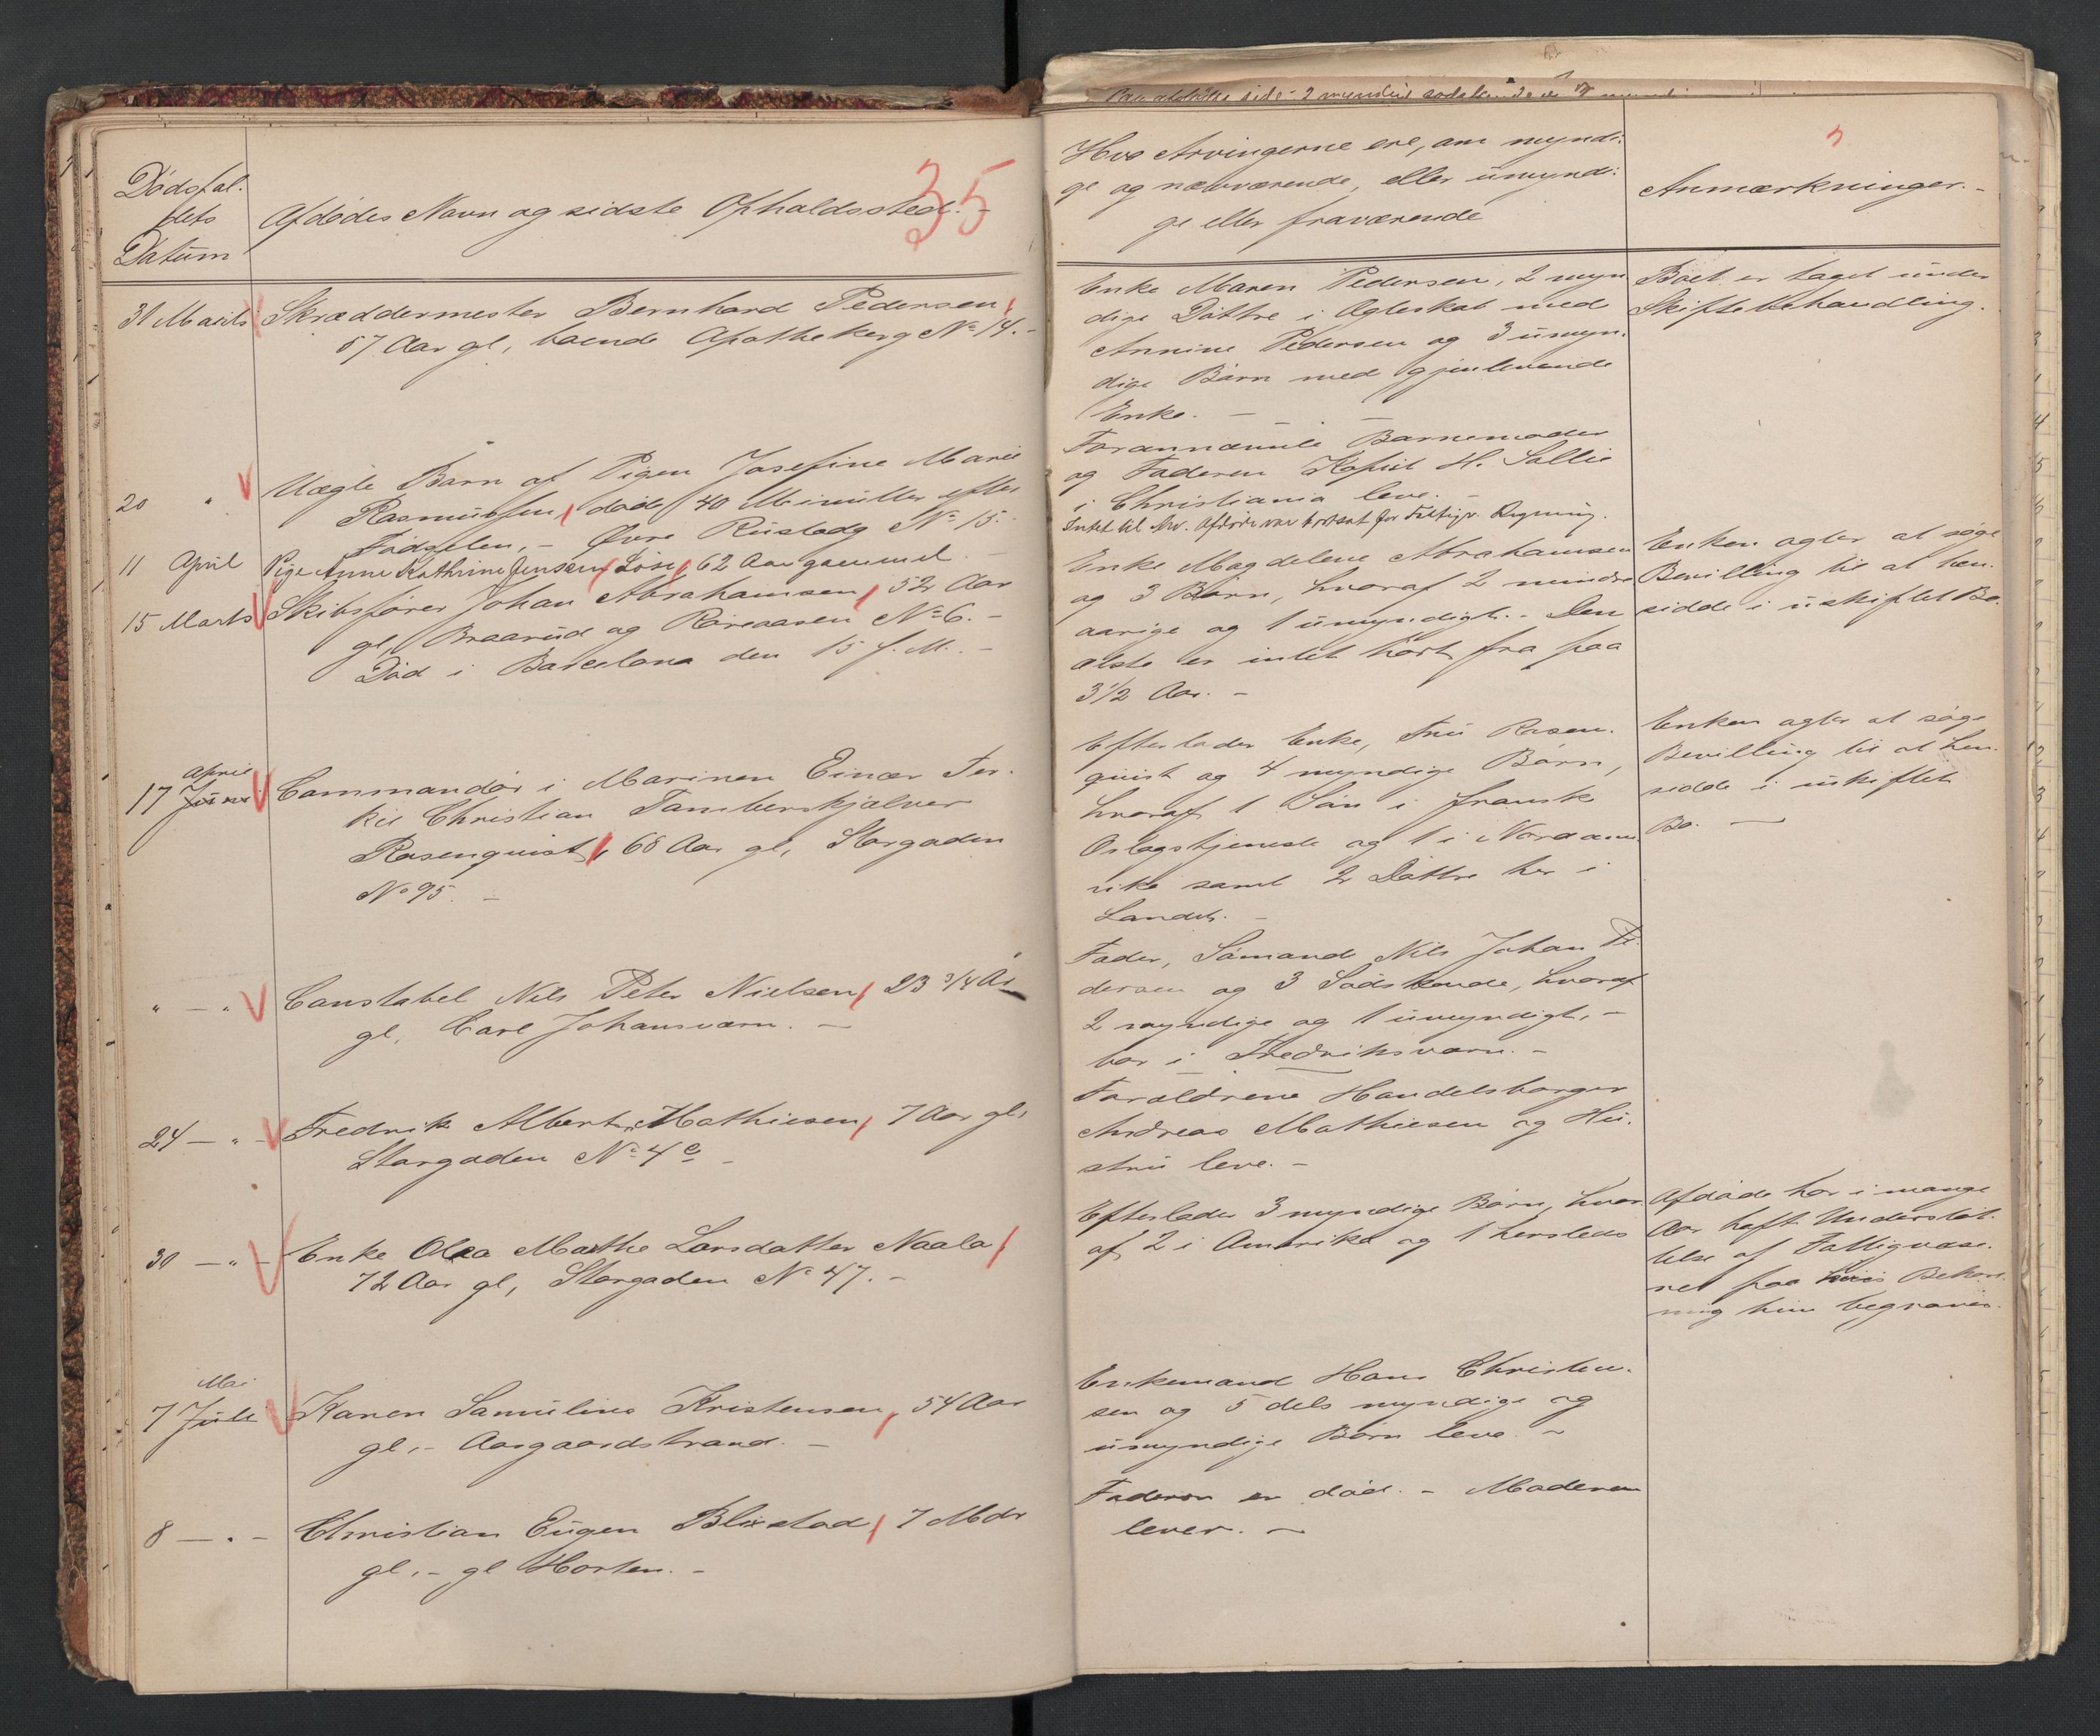 35
Dødsfal-
dets
Datum
Afdødes Navn og sidste Opholdssted. -
31 Marts Skræddermester Bernhard Pedersen,
57 Aar gl, boende Apothekerg No 14. -
20 " Uægte Barn af Pigen Josefine Marie
Rasmussen, død 40 Minutter efter
Fødselen, - Øvre Rusledg No 15. -
11 April Pige Anne Kathrine Jensen Løse, 62 Aar gammel -
15 Marts Skibsfører Johan Abrahamsen, 52 Aar
gl, Braarud og Røreaasen No 6. -
Død i Barcelona den 15 f. M. -
April
17 Juni Commandør i Marinen Einar Ter-
kil Christian Tamberskjelver
Rosenquist, 68 Aar gl, Storgaden
No 95. -
" - " Constabel Nils Peter Nielsen, 23 3/4 Aar
gl, Carl Johansværn. -
24 - " - Fredrik Albert Mathiesen, 7 Aar gl,
Storgaden No 4 c -
30 - " - Enke Olea Mathe Larsdatter Naala,
72 Aar gl, Storgaden No 47. -
Mai
7 Juli Karen Samuline Kristensen, 54 Aar
gl, - Aasgaardstrand. -
8 - " - Christian Eugen Blixstad, 7 Mdr
gl, - gl Horten. -
Hvo Arvingerne ere, om myndi-
ge og nærværende, eller umyndi-
ge eller fraværende
Anmærkninger. -
Enke Maren Pedersen, 2 myn-
dige Døttre i Ægteskab med
Annine Pedersen og 3 umyn-
dige Børn med gjenlevende
Enke. -
Boet er taget under
Skiftebehandling.
Forannævnte Barnemoder
og Faderen Kopist H. Sollie
i Christiania leve. -
Intet til Arv. Afdøde var bortsat for Fattigv. Regning.
Enke Magdelene Abrahamsen
og 3 Børn, hvoraf 2 mindre
aarige og 1 umyndigt. - Den
ælste er intet hørt fra paa
3 1/2 Aar. -
Enken agter at søge
Bevilling til at hen-
sidde i uskiftet Bo.
Efterlader Enke, Fru Rosen-
quist og 4 myndige Børn,
hvoraf 1 Søn i fransk
Oslogstjeneste og 1 i Nordame-
rika samt 2 Døttre her i
Landet. -
Enken agter at søge
Bevilling til at hen-
sidde i uskiftet
Bo. -
Fader, Sømand Nils Johan Pe-
dersen og 3 Sødskende, hvoraf
2 myndige og 1 umyndigt, -
bor i Fredriksværn. -
Forældrene Handelsborger
Andreas Mathiesen og Hu-
stru leve. -
Efterlader 3 myndige Børn, hvor-
af 2 i Amerika og 1 hersteds
Afdøde har i mange
Aar haft Understøt-
telse af Fattigvæse-
net paa hvis Bekost-
ning hun begraves.
Enkemand Hans Christen-
sen og 5 dels myndige og
umyndige Børn leve. -
Faderen er død. - Moderen
lever. -